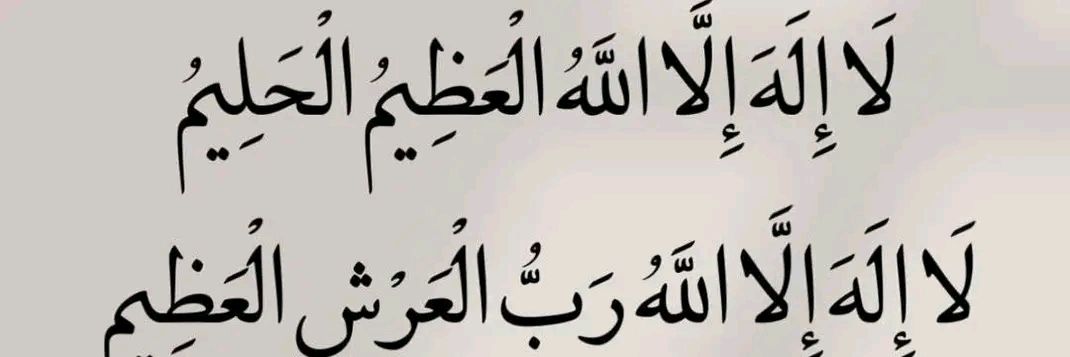 لَا إِلَهَ إِلَّا اللَّهُ الْعَظِيمُ الْحَلِيمُ
لَا إِلَهَ إِلَّا اللَّهُ رَبُّ الْعَرْشِ الْعَظِيمِ